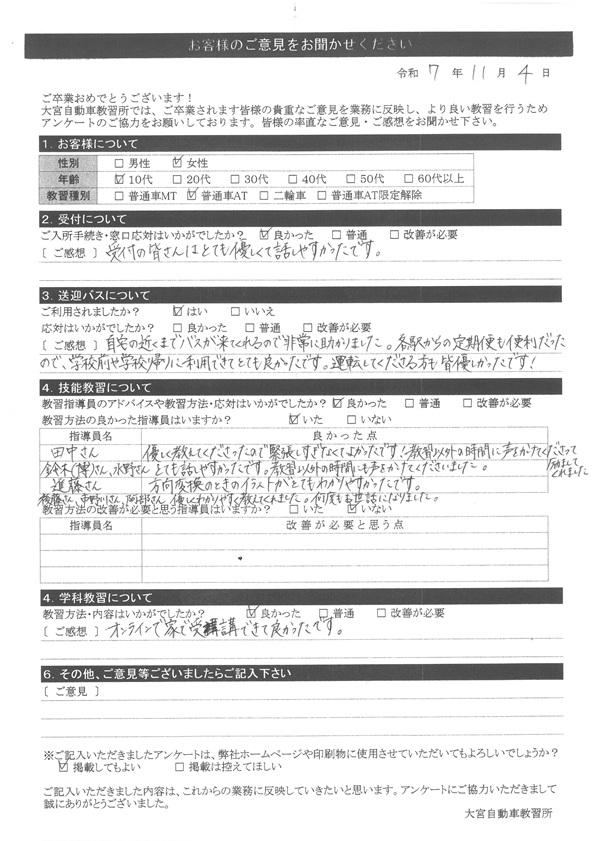 お客様のご意見をお聞かせください
令和 7 年 11 月 4 日
ご卒業おめでとうございます!
大宮自動車教習所では、ご卒業されます皆様の貴重なご意見を業務に反映し、より良い教習を行うため
アンケートのご協力をお願いしております。皆様の率直なご意見・ご感想をお聞かせ下さい。
1. お客様について
性別 □ 男性 ☑ 女性
年齢 ☑ 10代 □ 20代 □ 30代 □ 40代 □ 50代 □ 60代以上
教習種別 □ 普通車MT ☑ 普通車AT □ 二輪車 □ 普通車AT限定解除
2. 受付について
ご入所手続き・窓口応対はいかがでしたか? ☑ 良かった □ 普通 □ 改善が必要
[ ご感想 ] 受付の皆さんはとても優しくて話しやすかったです。
3. 送迎バスについて
ご利用されましたか? ☑ はい □ いいえ
応対はいかがでしたか? □ 良かった □ 普通 □ 改善が必要
[ ご感想 ] 自宅の近くまでバスが来てくれるので非常に助かりました。各駅からの定期便も便利だった
ので、学校前や学校帰りに利用できてとても良かったです。運転してくださる方も皆優しかったです!
4. 技能教習について
教習指導員のアドバイスや教習方法・応対はいかがでしたか? ☑ 良かった □ 普通 □ 改善が必要
教習方法の良かった指導員はいますか? ☑ いた □ いない
指導員名 良かった点
田中さん 優しく教えてくださったので緊張しすぎなくてよかったです!教習以外の時間に声をかけてくださって
励まして
くれました
鈴木(博)さん、水野さん とても話しやすかったです。教習以外の時間にも声をかけてくださいました。
進藤さん 方向変換のときのイラストがとてもわかりやすかったです。
後藤さん、市野川さん、阿部さん 優しくわかりやすく教えてくれました。何度もお世話になりました。
教習方法の改善が必要と思う指導員はいますか? □ いた ☑ いない
指導員名 改善が必要と思う点
4. 学科教習について
教習方法・内容はいかがでしたか? ☑ 良かった □ 普通 □ 改善が必要
[ ご感想 ] オンラインで家で受講できて良かったです。
6. その他、ご意見等ございましたらご記入下さい
[ ご意見 ]
※ご記入いただきましたアンケートは、弊社ホームページや印刷物に使用させていただいてもよろしいでしょうか?
☑ 掲載してもよい □ 掲載は控えてほしい
ご記入いただきました内容は、これからの業務に反映していきたいと思います。アンケートにご協力いただきまして
誠にありがとうございました。
大宮自動車教習所